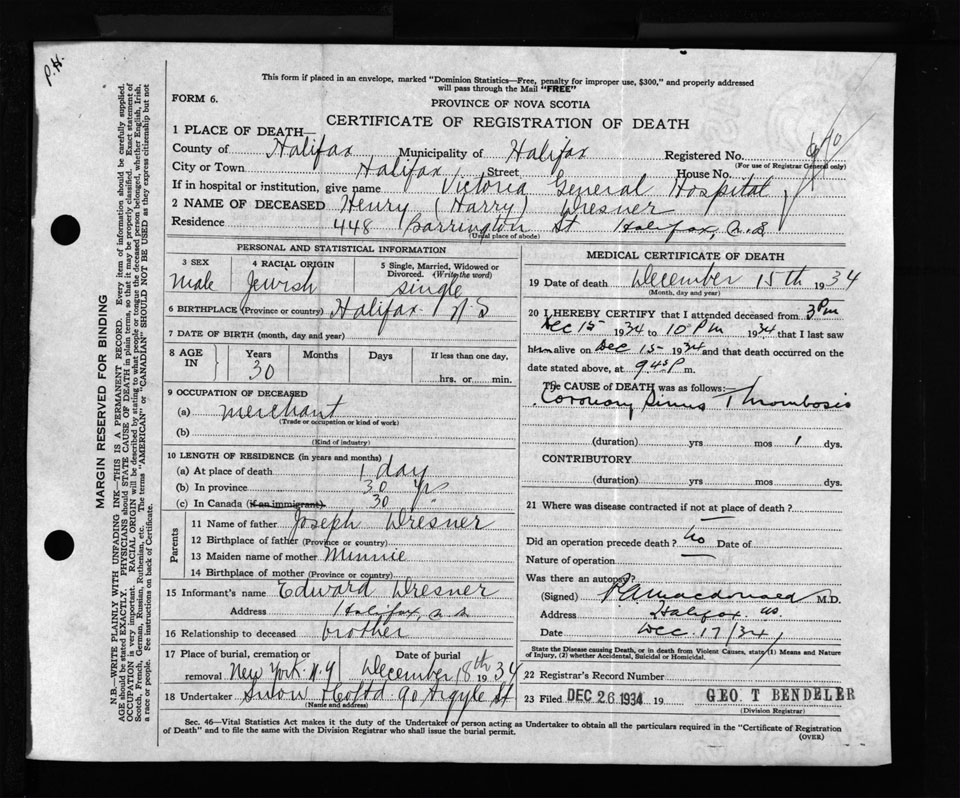 P.H.
This form if placed in an envelope, marked "Dominion Statistics—Free, penalty for improper use, $300," and properly addressed
will pass through the Mail "FREE"
FORM 6.
PROVINCE OF NOVA SCOTIA
CERTIFICATE OF REGISTRATION OF DEATH
1 PLACE OF DEATH—
County of Halifax Municipality of Halifax Registered No.
(For use of Registrar General only)
City or Town Halifax Street House No.
If in hospital or institution, give name Victoria General Hospital
2 NAME OF DECEASED Henry (Harry) Wresner
Residence 448 Barrington St Halifax, N.S
(Usual place of abode)
PERSONAL AND STATISTICAL INFORMATION
3 SEX 4 RACIAL ORIGIN 5 Single, Married, Widowed or
Divorced. (Write the word)
Male Jewish single
6 BIRTHPLACE (Province or country) Halifax N S
7 DATE OF BIRTH (month, day and year)
8 AGE IN Years Months Days If less than one day,
30 hrs. or min.
9 OCCUPATION OF DECEASED
(a) merchant
(Trade or occupation or kind of work)
(b)
(Kind of industry)
10 LENGTH OF RESIDENCE (in years and months)
(a) At place of death 1 day
(b) In province 30 yrs
(c) In Canada (if an immigrant) 30 "
Parents
11 Name of father Joseph Wresner
12 Birthplace of father (Province or country)
13 Maiden name of mother Minnie
14 Birthplace of mother (Province or country)
15 Informant's name Edward Wresner
Address Halifax, N.S
16 Relationship to deceased brother
17 Place of burial, cremation or removal Date of burial
New York N.Y December 18th 1934
18 Undertaker Snow & Co Ltd 90 Argyle St
(Name and address)
MEDICAL CERTIFICATE OF DEATH
19 Date of death December 15th 1934
(Month, day and year)
20 I HEREBY CERTIFY that I attended deceased from 3 Pm
Dec 15 1934 to 10 Pm 1934 that I last saw
him alive on Dec 15 1934 and that death occurred on the
date stated above, at 9 45 P m.
The CAUSE of DEATH was as follows:
Coronary Sinus Thrombosis
(duration) yrs mos 1 dys.
CONTRIBUTORY
(duration) yrs mos dys.
21 Where was disease contracted if not at place of death?
Did an operation precede death? No Date of
Nature of operation
Was there an autopsy?
(Signed) M.D.
Address Halifax NS.
Date Dec. 17/34
State the Disease causing Death, or in death from Violent Causes, state (1) Means and Nature
of Injury, (2) whether Accidental, Suicidal or Homicidal.
22 Registrar's Record Number
23 Filed DEC 26 1934 19 GEO. T BENDELER
(Division Registrar)
Sec. 46—Vital Statistics Act makes it the duty of the Undertaker or person acting as Undertaker to obtain all the particulars required in the "Certificate of Registration
of Death" and to file the same with the Division Registrar who shall issue the burial permit.
(OVER)
MARGIN RESERVED FOR BINDING
N.B.—WRITE PLAINLY WITH UNFADING INK—THIS IS A PERMANENT RECORD. Every item of information should be carefully supplied.
AGE should be stated EXACTLY. PHYSICIANS should STATE CAUSE OF DEATH in plain terms, so that it may be properly classified. Exact statement of
OCCUPATION is very important. RACIAL ORIGIN will be described by stating to what people or tongue the deceased person belonged, whether English, Irish,
Scotch, French, German, Russian, Ruthenian, etc. The terms "AMERICAN" or "CANADIAN" SHOULD NOT BE USED as they express citizenship but not
a race or people. See instructions on back of Certificate.